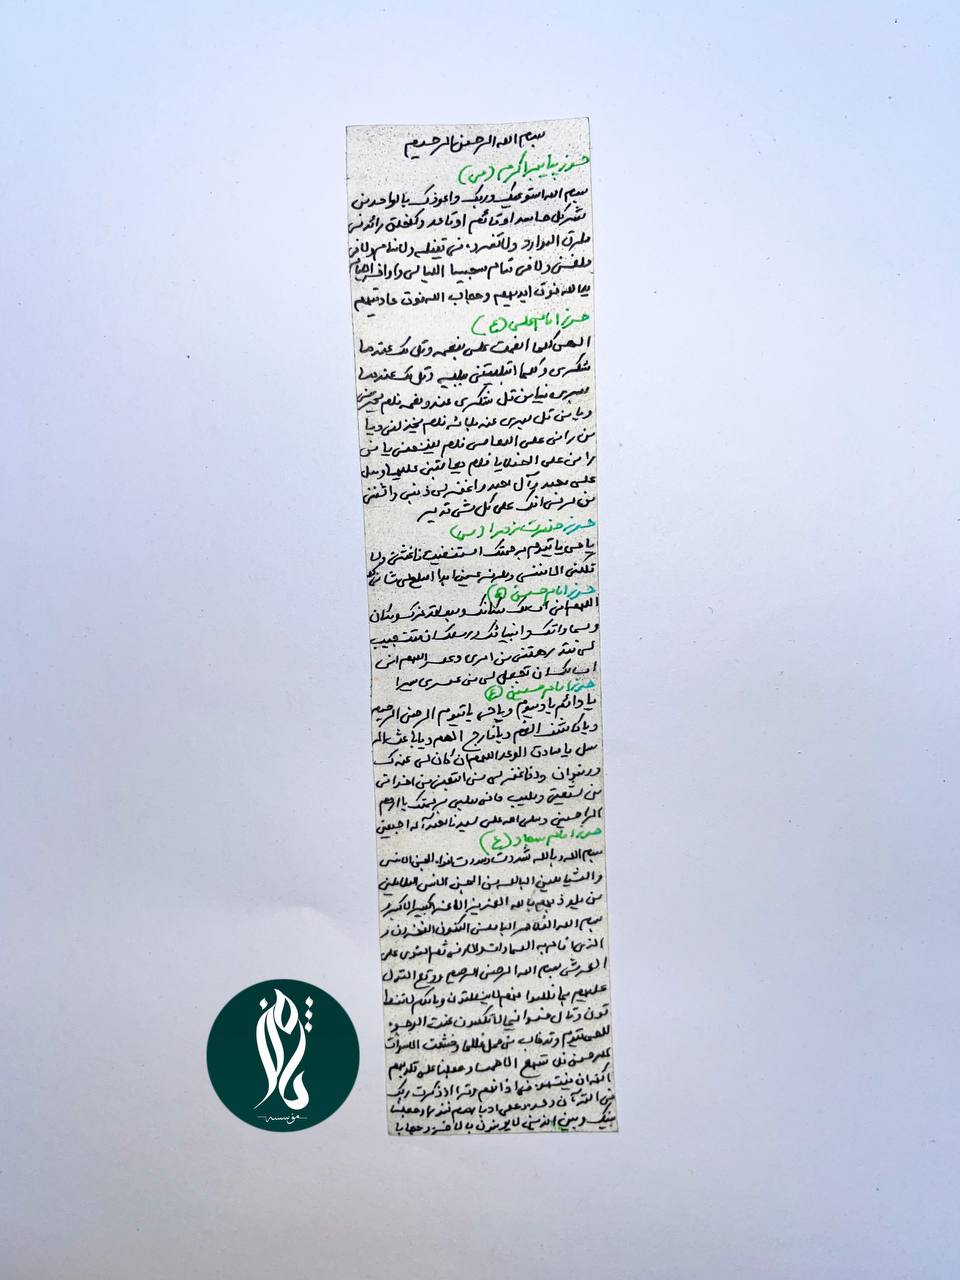 بسم الله الرحمن الرحیم
حرز پیامبر اکرم (ص)
بسم الله استودعک وربک واعوذک بالواحد من
شر کل حاسد او قائم او قاعد وکل خلق رائد فی
طرق الموارد ولا تضره فی یقظه ولا منام ولا فی
ولا فی مقام سجیس اللیالی واواخر الایام
یدالله فوق ایدیهم وحجاب الله فوق عادیتهم
حرز امام علی (ع)
الهی کلما انعمت علی بنعمه وقل لک عندها
شکری وکلما ابتلیتنی ببلیه وقل لک عندها
صبری فیا من قل شکری عند نعمه فلم یحرمنی
ویا من قل صبری عند بلائه فلم یخذلنی ویا
من رانی علی المعاصی فلم یفضحنی یا من
رانی علی الخطایا فلم یعاقبنی علیها وصل
علی محمد وآل محمد واغفر لی ذنبی واشفنی
من مرضی انک علی کل شی قدیر
حرز حضرت زهرا (س)
یا حی یا قیوم برحمتک استغیث فاغثنی ولا
تکلنی الی نفسی طرفه عین ابدا اصلح لی شانی کله
حرز امام حسن (ع)
اللهم انی اسالک بمکانک وبمعاقد عزک وسکان
وسماواتک وانبیائک ورسلک ان تستجیب
لی فقد رهقنی من امری وعسر اللهم انی
اسالک ان تجعل لی من عسری یسرا
حرز امام حسین (ع)
یا دائم یا دیموم ویا حی یا قیوم الرحمن الرحیم
ویا کاشف الغم ویا فارج الهم ویا باعث الر
سل یا صادق الوعد اللهم ان کان لی عندک
ورضوان وود فاغفر لی من اتبعنی من اخوانی
من شیعتی وطیب ما فی صلبی برحمتک یا ارحم
الراحمین وصلی الله علی سیدنا محمد وآله اجمعین
حرز امام سجاد (ع)
بسم الله وبالله سددت افواه الجن الانس
والشیاطین ابالسه من الجن الانس السلاطین
من یلوذ بهم بالله العزیز الاعز الکبیر الاکبر و
بسم الله الظاهر الباطن المکنون المخزون و
الذی اقام به السماوات والارض ثم استوی علی
العرش بسم الله الرحمن الرحیم ووقع القول
علیهم بما ظلموا فهم لا ینطقون ومالکم لا تنط
قون وقال اخسئوا فیها ولا تکلمون عنت الوجوه
للحی القیوم وقد خاب من حمل ظلما وخشعت الاصوات
للرحمن فلا تسمع الا همسا وجعلنا علی قلوبهم
اکنة ان یفقهوه فی اذانهم وقرا اذا ذکرت ربک
فی القرآن وحده ولوا علی ادبارهم نفورا وجعلنا
بینک وبین الذین لا یومنون بالاخرة حجابا
مؤسسه